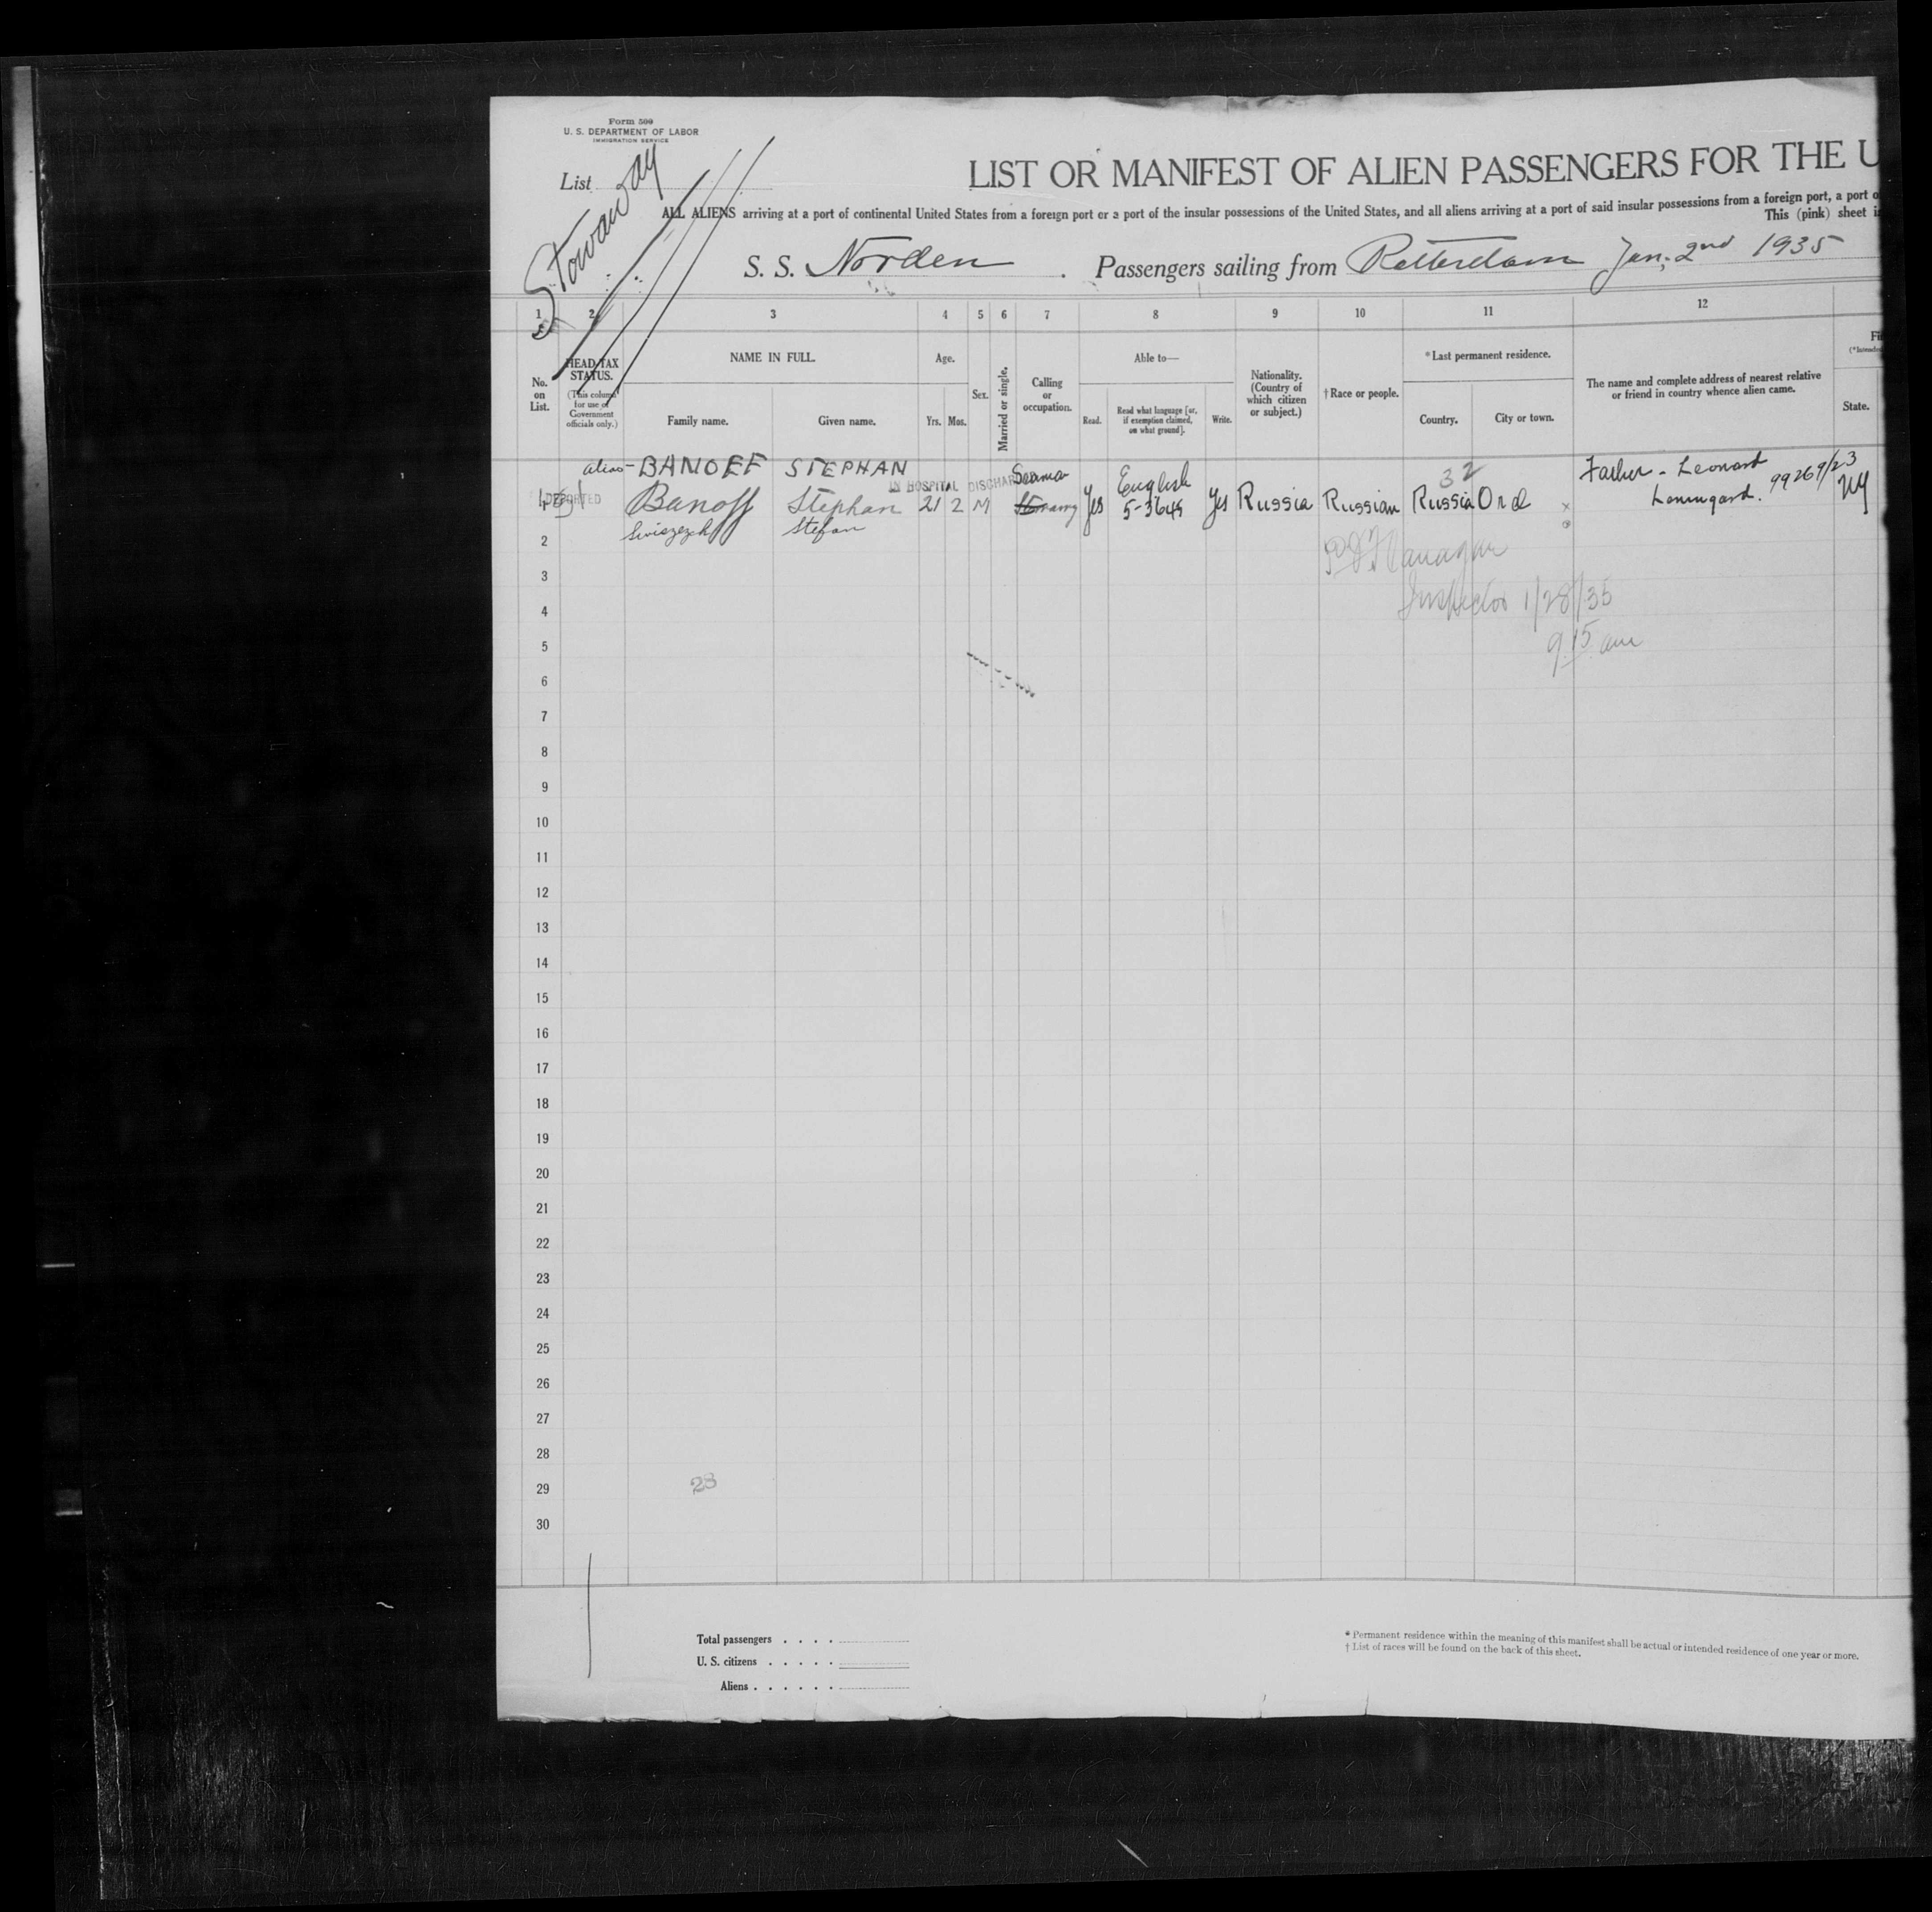 Form 500
U. S. DEPARTMENT OF LABOR
IMMIGRATION SERVICE
List
Stowaway
LIST OR MANIFEST OF ALIEN PASSENGERS FOR THE U
ALL ALIENS arriving at a port of continental United States from a foreign port or a port of the insular possessions of the United States, and all aliens arriving at a port of said insular possessions from a foreign port, a port o
This (pink) sheet i
S. S. Norden . Passengers sailing from Rotterdam Jan. 2nd 1935
1 2 3 4 5 6 7 8 9 10 11 12
No. on List.
HEAD-TAX STATUS.
(This column for use of Government officials only.)
NAME IN FULL.
Family name. Given name.
Age.
Yrs. Mos.
Sex.
Married or single.
Calling or occupation.
Able to—
Read. Read what language [or, if exemption claimed, on what ground]. Write.
Nationality. (Country of which citizen or subject.)
† Race or people.
* Last permanent residence.
Country. City or town.
The name and complete address of nearest relative or friend in country whence alien came.
Fi
(*Intende
State.
alias- BANOFF STEPHAN
IN HOSPITAL DISCHAR
Seaman
English
32
Father - Leonard
99269/23
DEPORTED
Banoff Stephan 21 2 M Yes 5-3645 Yes Russia Russian Russia Orel
NY
Stefan
2
Flanagan
3
Inspector 1/28/35
4
9 15 am
5
6
7
8
9
10
11
12
13
14
15
16
17
18
19
20
21
22
23
24
25
26
27
28
29
28
30
Total passengers . . . .
U. S. citizens . . . . .
Aliens . . . . . .
* Permanent residence within the meaning of this manifest shall be actual or intended residence of one year or more.
† List of races will be found on the back of this sheet.